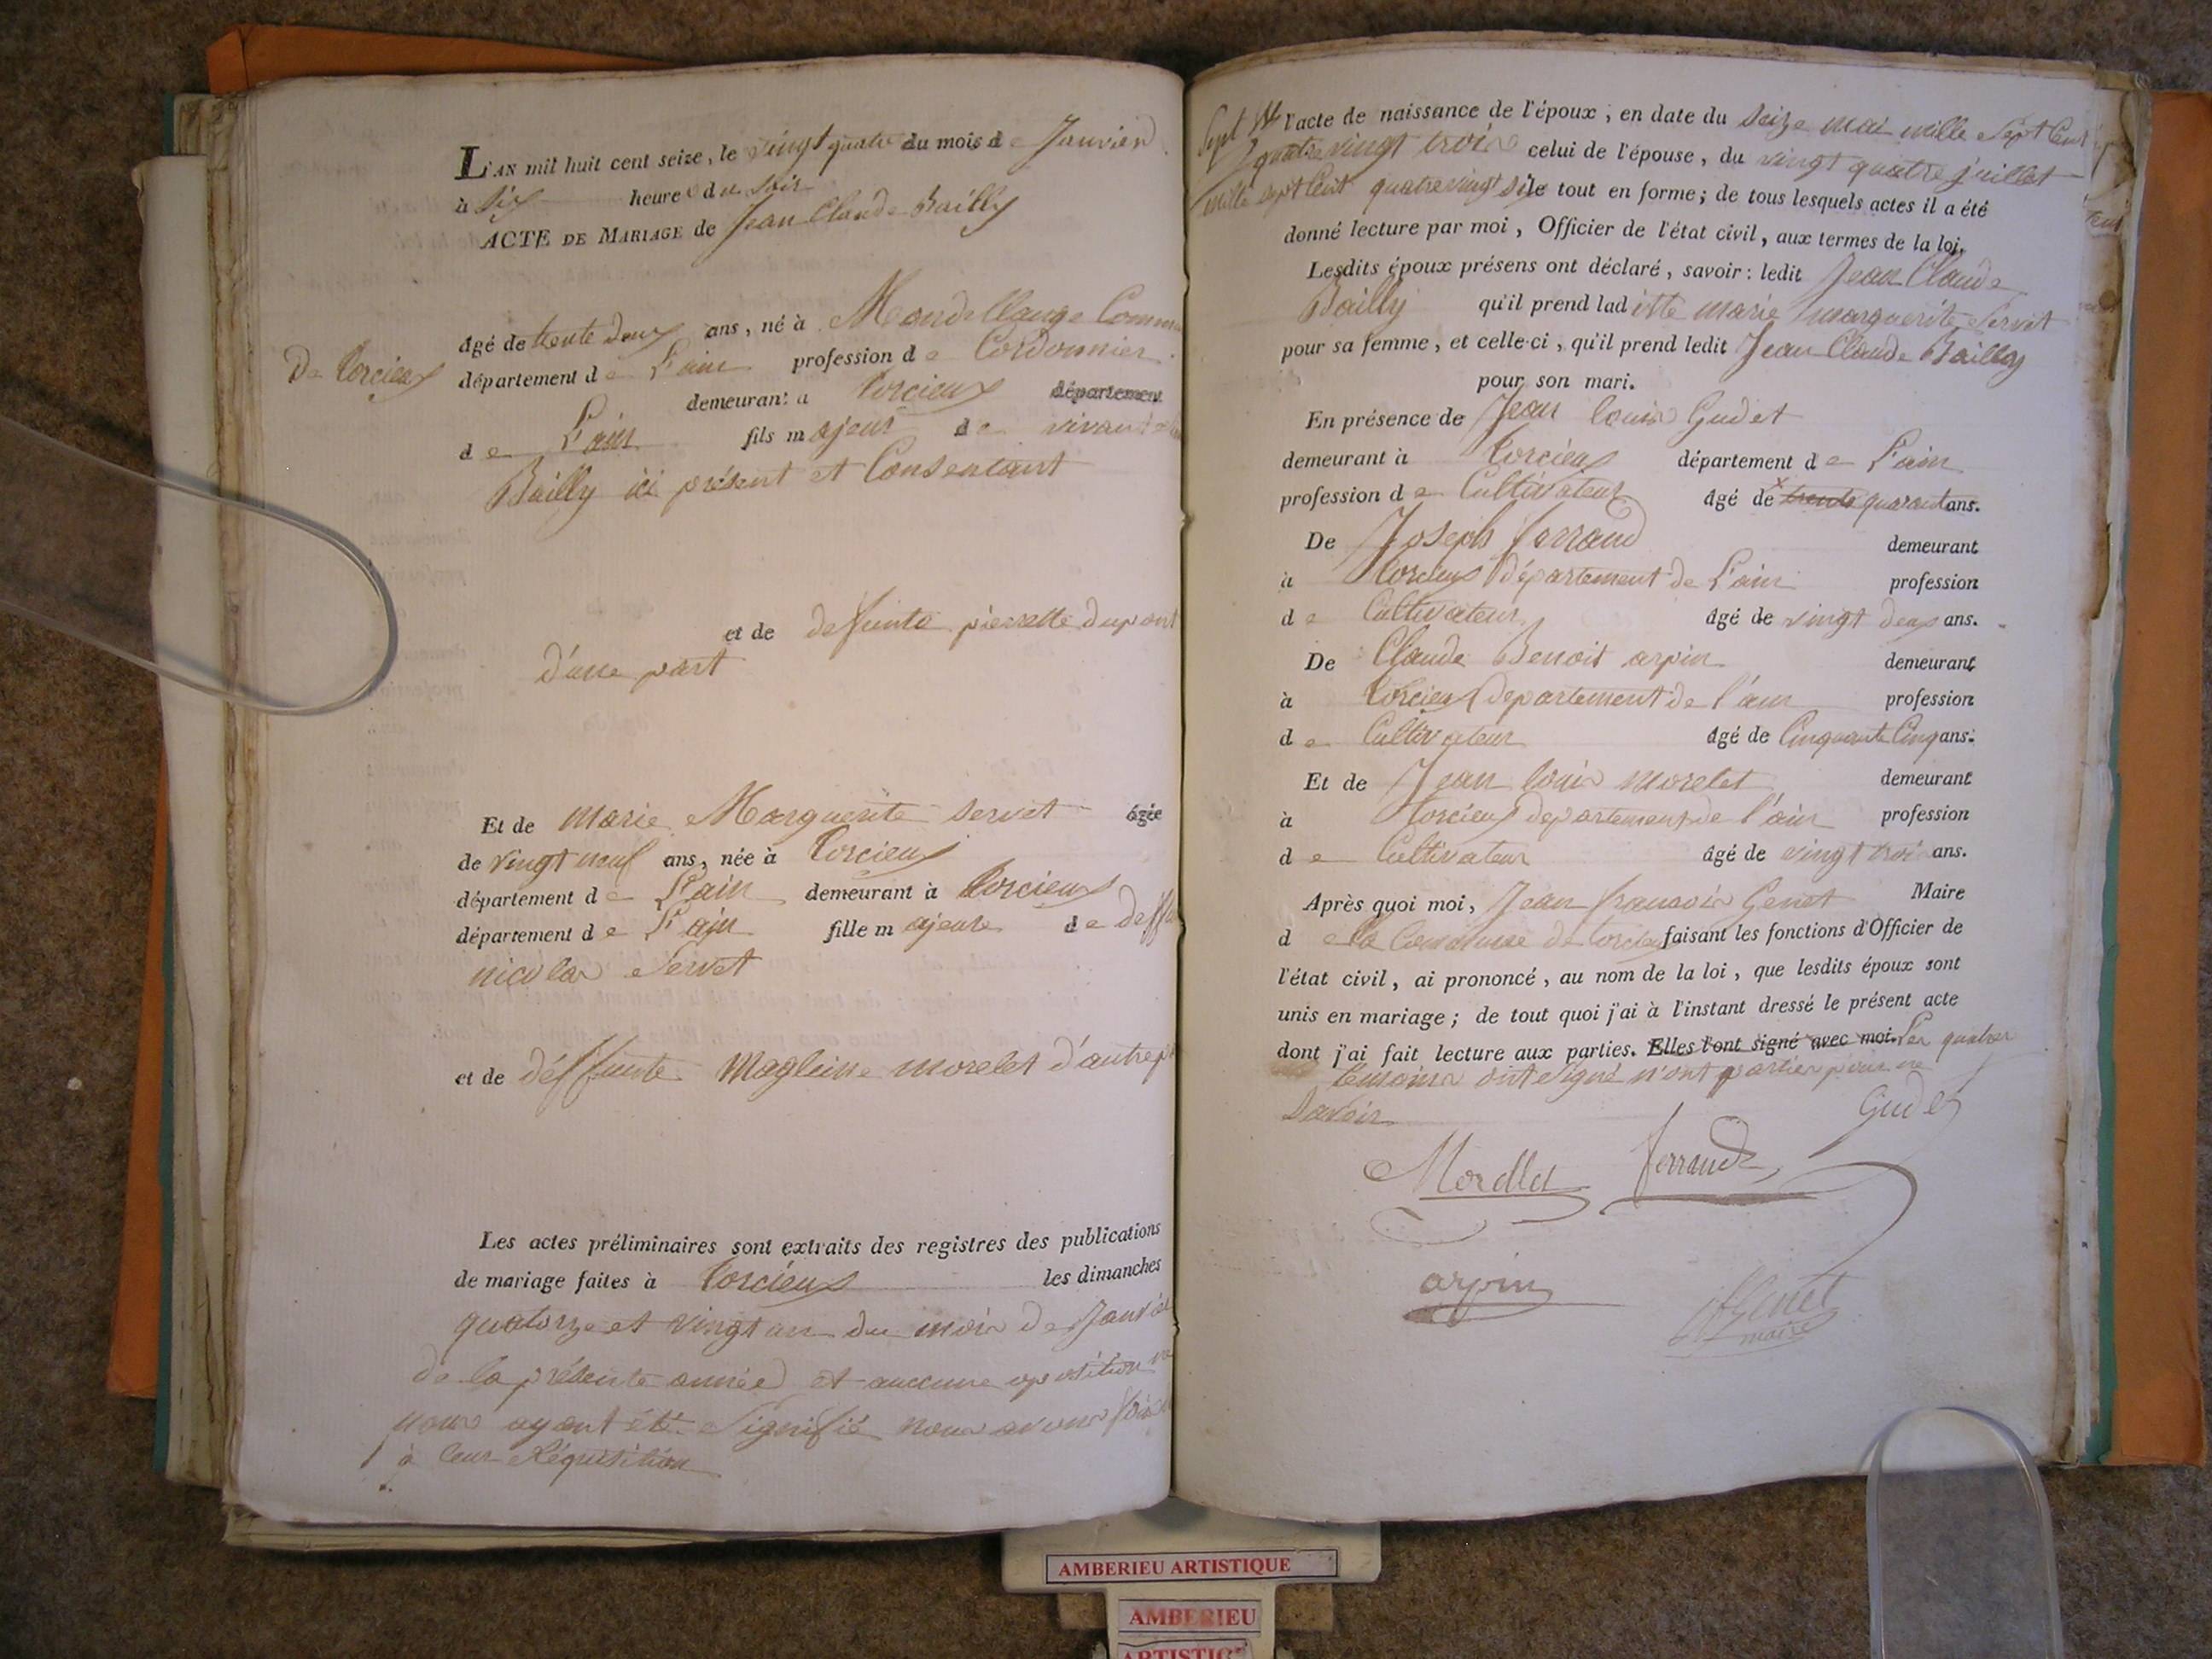 L'AN mil huit cent seize, le vingt quatre du mois de Janvier
à six heures du soir
ACTE DE MARIAGE de Jean Claude Bailly
âgé de trente deux ans, né à Mondellange Commu
De torcieux
département de L'ain profession de Cordonnier
demeurant à torcieux département
de L'ain fils majeur de vivant
Bailly ici présent et Consentant
et de defunte pierrette dupont
d'une part
Et de marie Marguerite servet âgée
de vingt neuf ans, née à torcieux
département de L'ain demeurant à torcieux
département de L'ain fille majeure de deffu
nicolas servet
et de déffunte Magleine morelet d'autrep
Les actes préliminaires sont extraits des registres des publications
de mariage faites à torcieux les dimanches
quatorze et vingt un du mois de Janvie
de la présente année et auccune opostition ne
nous ayant été signifié nous avons
à leur Réquisition
l'acte de naissance de l'époux ; en date du seize mai mille sept Cent
quatre vingt trois celui de l'épouse, du vingt quatre juillet
mille sept Cent quatre vingt six le tout en forme ; de tous lesquels actes il a été
donné lecture par moi, Officier de l'état civil, aux termes de la loi.
Lesdits époux présens ont déclaré, savoir : ledit Jean Claude
Bailly qu'il prend laditte marie marguerite servet
pour sa femme, et celle-ci, qu'il prend ledit Jean Claude Bailly
pour son mari.
En présence de Jean louis Gudet
demeurant à torcieux département de L'ain
profession de Cultivateur âgé de trente quarante ans.
De Joseph ferrand demeurant
à torcieux département de L'ain profession
de Cultivateur âgé de vingt deux ans.
De Claude Benoit arpin demeurant
à torcieux departement de l'ain profession
de Cultivateur âgé de Cinquante Cinq ans.
Et de Jean louis morelet demeurant
à torcieux departement de l'ain profession
de Cultivateur âgé de vingt trois ans.
Après quoi moi, Jean françois Genet Maire
de la Commune de torcieu faisant les fonctions d'Officier de
l'état civil, ai prononcé, au nom de la loi, que lesdits époux sont
unis en mariage ; de tout quoi j'ai à l'instant dressé le présent acte
dont j'ai fait lecture aux parties. Elles l'ont signé avec moi. Les quatres
temoins ont signé n'ont parties pour ne
savoir
Gudet
Morellet ferrand
arpin Genet
maire
AMBERIEU ARTISTIQUE
AMBERIEU
ARTISTIQ